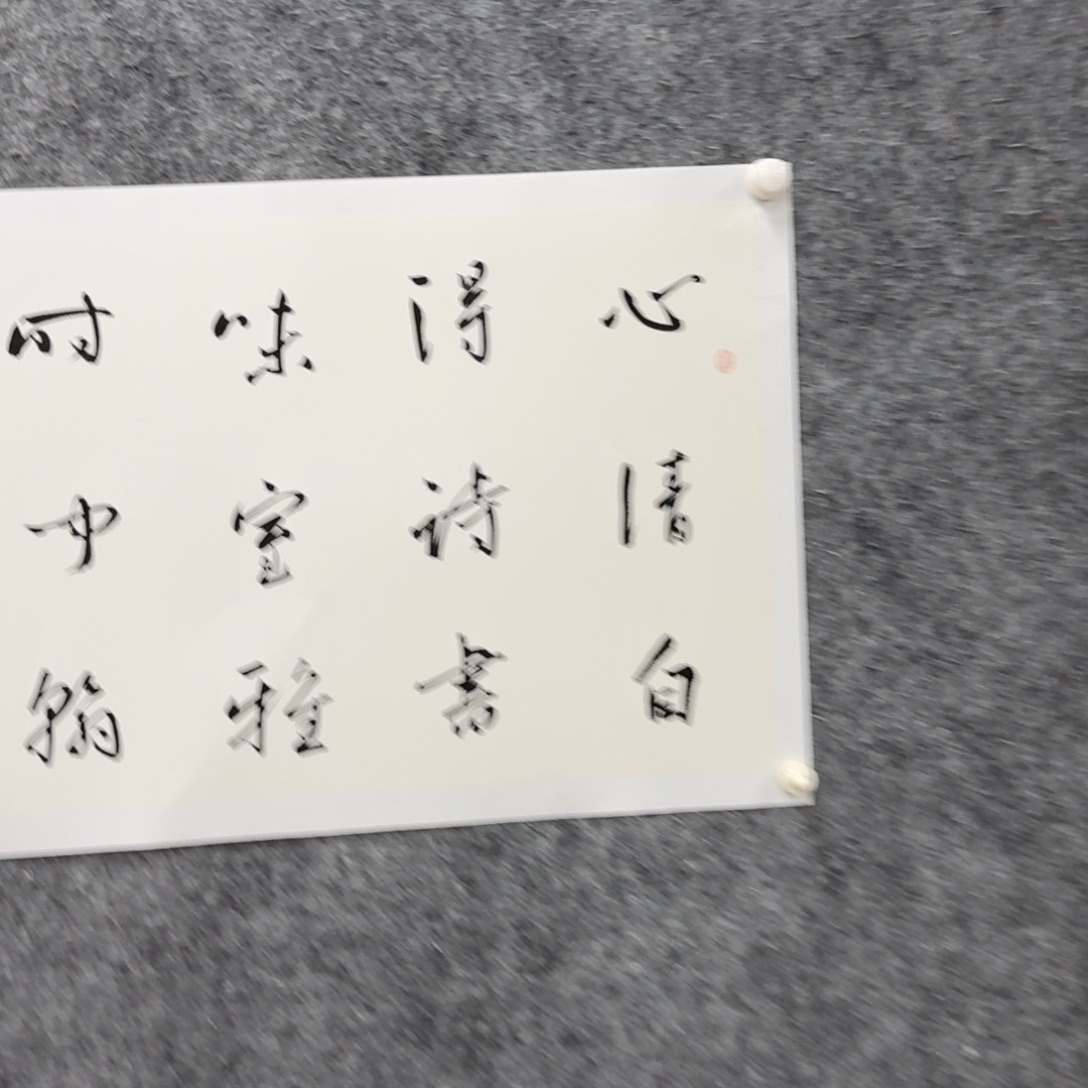 心清自
得诗書
味室雅
时闻翰